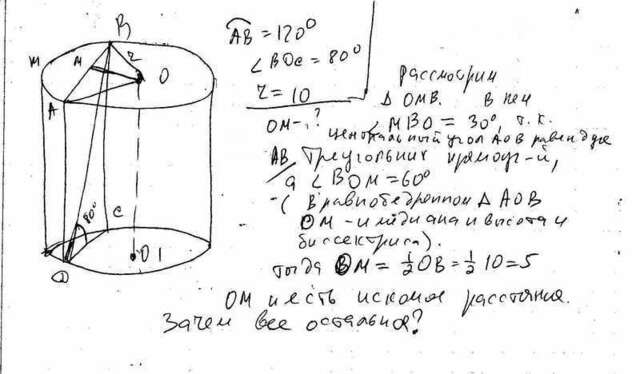 ÃB = 120°
∠BOC = 80°
r = 10
OM - ?
Рассмотрим
Δ OMB. В нем
∠ MBO = 30°, т.к.
центральный угол AOB равен дуге
AB. Треугольник прямоуг-й,
а ∠ BOM = 60°
(В равнобедренном Δ AOB
OM - и медиана и высота и
биссектриса).
тогда OM = 1/2 OB = 1/2 10 = 5
OM и есть искомое расстояние.
Зачем все остальное?
B
m
M
r
O
A
C
80°
D
O1